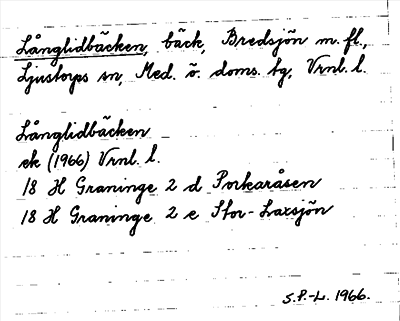 Långlidbäcken, bäck, Bredsjön m.fl.,
Ljustorps sn, Med. ö. doms. tg, Vrnl. l.
Långlidbäcken
ek (1966) Vrnl. l.
18 H Graninge 2 d Porkaråsen
18 H Graninge 2 e Stor-Laxsjön
S.P.-L. 1966.